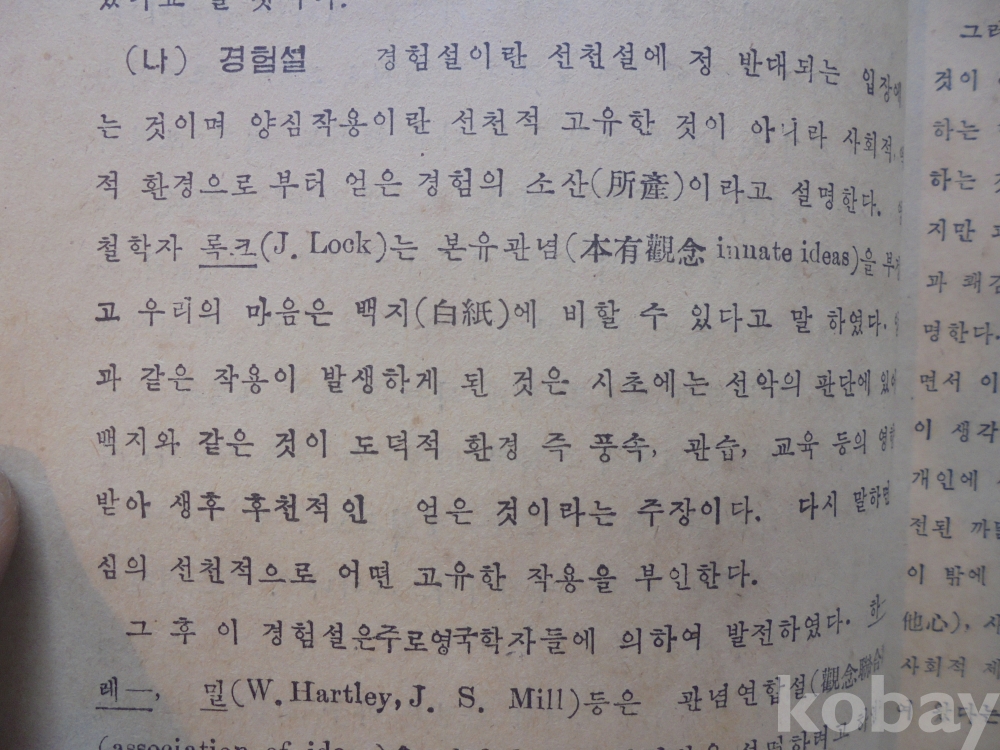 (나) 경험설 경험설이란 선천설에 정 반대되는 입장에
는 것이며 양심작용이란 선천적 고유한 것이 아니라 사회적,
적 환경으로 부터 얻은 경험의 소산(所產)이라고 설명한다.
철학자 록크(J. Lock)는 본유관념(本有觀念 innate ideas)을
고 우리의 마음은 백지(白紙)에 비할 수 있다고 말 하였다.
과 같은 작용이 발생하게 된 것은 시초에는 선악의 판단에 있어
백지와 같은 것이 도덕적 환경 즉 풍속, 관습, 교육 등의
받아 생후 후천적인 얻은 것이라는 주장이다. 다시 말하면
심의 선천적으로 어떤 고유한 작용을 부인한다.
그 후 이 경험설은주로영국학자들에 의하여 발전하였다. 하
레ー, 밀(W. Hartley, J. S. Mill)등은 관념연합설(觀念聯合
(association of
그러
것이
하는
하는
지만
과 쾌감
명한다.
면서 이
이 생각
개인에
전된 까닭
이 밖에
他心), 사
사회적 제
kobay